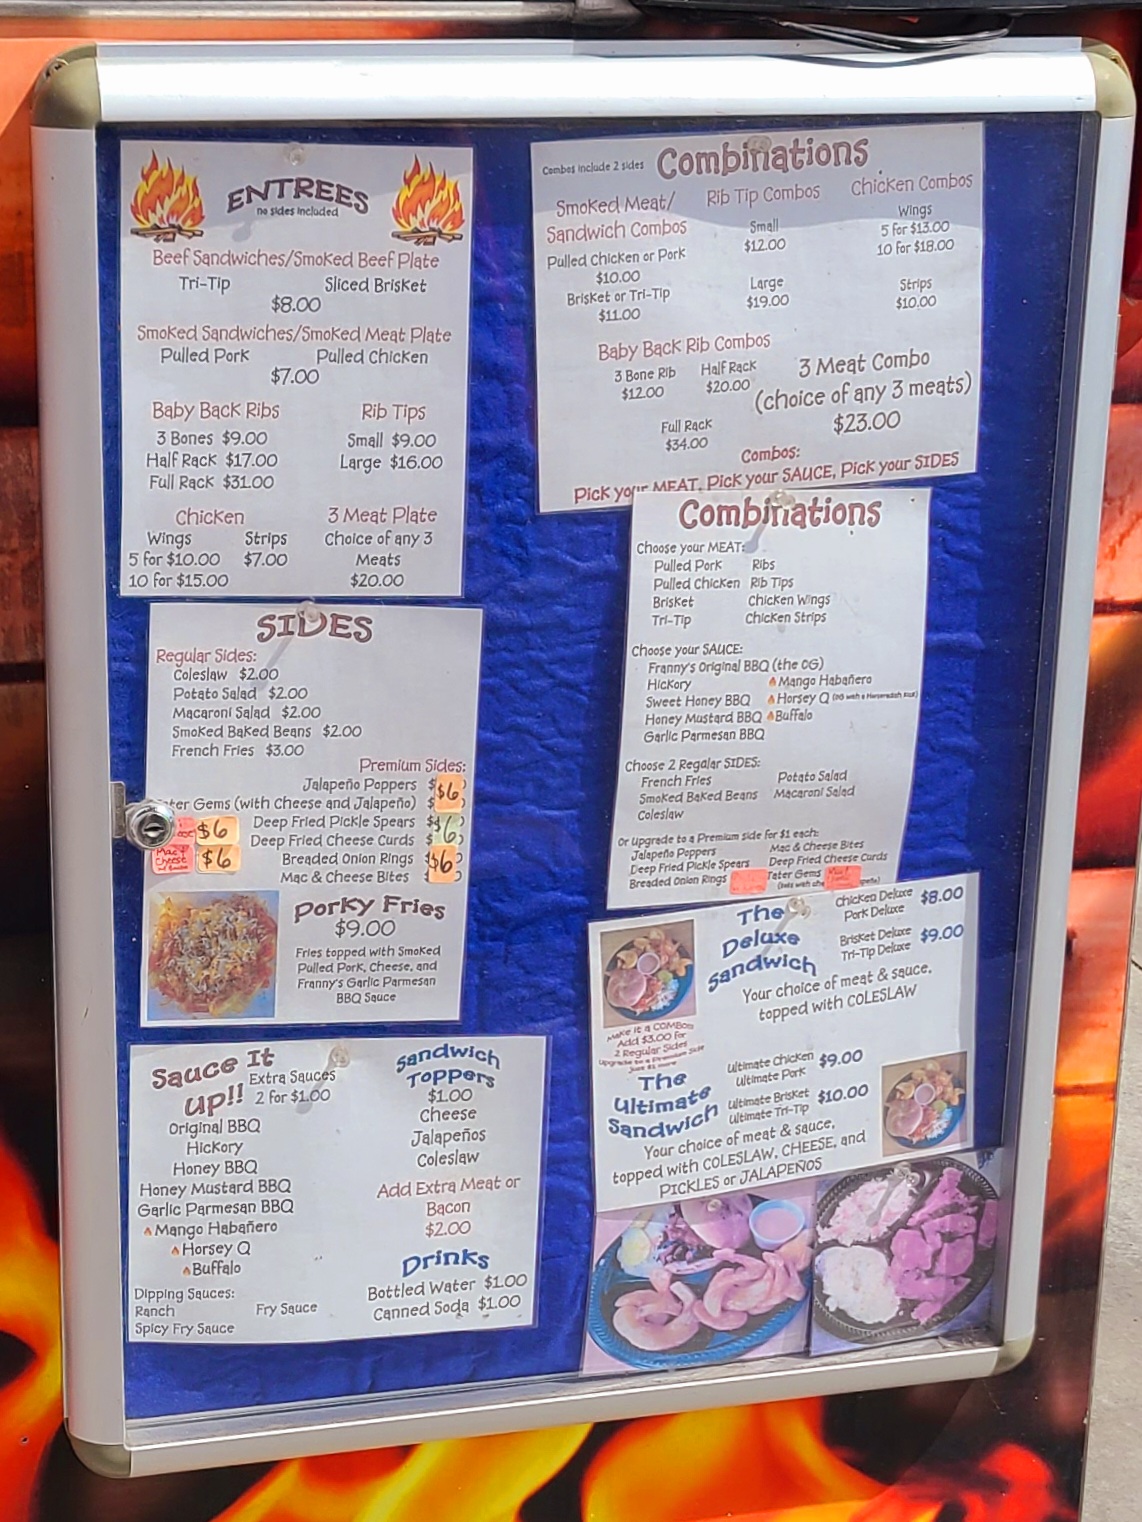 ENTREES
no sides included
Beef Sandwiches/Smoked Beef Plate
Tri-Tip Sliced Brisket
$8.00
Smoked Sandwiches/Smoked Meat Plate
Pulled Pork Pulled Chicken
$7.00
Baby Back Ribs Rib Tips
3 Bones $9.00 Small $9.00
Half Rack $17.00 Large $16.00
Full Rack $31.00
Chicken 3 Meat Plate
Wings Strips Choice of any 3
5 for $10.00 $7.00 Meats
10 for $15.00 $20.00
SIDES
Regular Sides:
Coleslaw $2.00
Potato Salad $2.00
Macaroni Salad $2.00
Smoked Baked Beans $2.00
French Fries $3.00
Premium Sides:
Jalapeño Poppers $6
Gems (with Cheese and Jalapeño) $
$6 Deep Fried Pickle Spears $6
Deep Fried Cheese Curds $6
Mac & Cheese $6 Breaded Onion Rings $6
Mac & Cheese Bites $
Porky Fries
$9.00
Fries topped with Smoked
Pulled Pork, Cheese, and
Franny's Garlic Parmesan
BBQ Sauce
Sauce It
Up!!
Extra Sauces
2 for $1.00
Original BBQ
Hickory
Honey BBQ
Honey Mustard BBQ
Garlic Parmesan BBQ
Mango Habañero
Horsey Q
Buffalo
Dipping Sauces:
Ranch Fry Sauce
Spicy Fry Sauce
Sandwich
Toppers
$1.00
Cheese
Jalapeños
Coleslaw
Add Extra Meat or
Bacon
$2.00
Drinks
Bottled Water $1.00
Canned Soda $1.00
Combos include 2 sides Combinations
Smoked Meat/
Sandwich Combos
Pulled Chicken or Pork
$10.00
Brisket or Tri-Tip
$11.00
Rib Tip Combos
Small
$12.00
Large
$19.00
Chicken Combos
Wings
5 for $13.00
10 for $18.00
Strips
$10.00
Baby Back Rib Combos
3 Bone Rib Half Rack
$12.00 $20.00
Full Rack
$34.00
3 Meat Combo
(choice of any 3 meats)
$23.00
Combos:
Pick your MEAT, Pick your SAUCE, Pick your SIDES
Combinations
Choose your MEAT:
Pulled Pork Ribs
Pulled Chicken Rib Tips
Brisket Chicken Wings
Tri-Tip Chicken Strips
Choose your SAUCE:
Franny's Original BBQ (the OG)
Hickory Mango Habañero
Sweet Honey BBQ Horsey Q (OG with a Horseradish Kick)
Honey Mustard BBQ Buffalo
Garlic Parmesan BBQ
Choose 2 Regular SIDES:
French Fries Potato Salad
Smoked Baked Beans Macaroni Salad
Coleslaw
Or Upgrade to a Premium side for $1 each:
Jalapeño Poppers Mac & Cheese Bites
Deep Fried Pickle Spears Deep Fried Cheese Curds
Breaded Onion Rings Tater Gems
The
Deluxe
Sandwich
Chicken Deluxe
Pork Deluxe $8.00
Brisket Deluxe
Tri-Tip Deluxe $9.00
Your choice of meat & sauce,
topped with COLESLAW
Make it a COMBO!
Add $3.00 for
2 Regular Sides
Upgrade to a Premium Side
just $1 more
The
Ultimate
Sandwich
Ultimate Chicken
Ultimate Pork $9.00
Ultimate Brisket
Ultimate Tri-Tip $10.00
Your choice of meat & sauce,
topped with COLESLAW, CHEESE, and
PICKLES or JALAPEÑOS